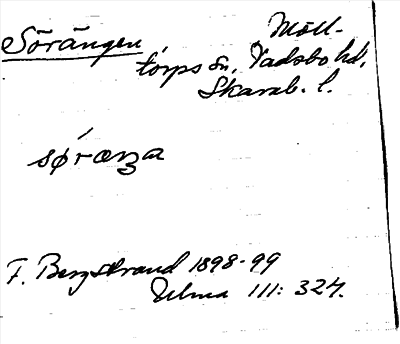 Sörängen,
Möll-
torps sn, Vadsbo hd,
Skarab. l.
F. Bergstrand 1898-99
Ulma 111: 324.